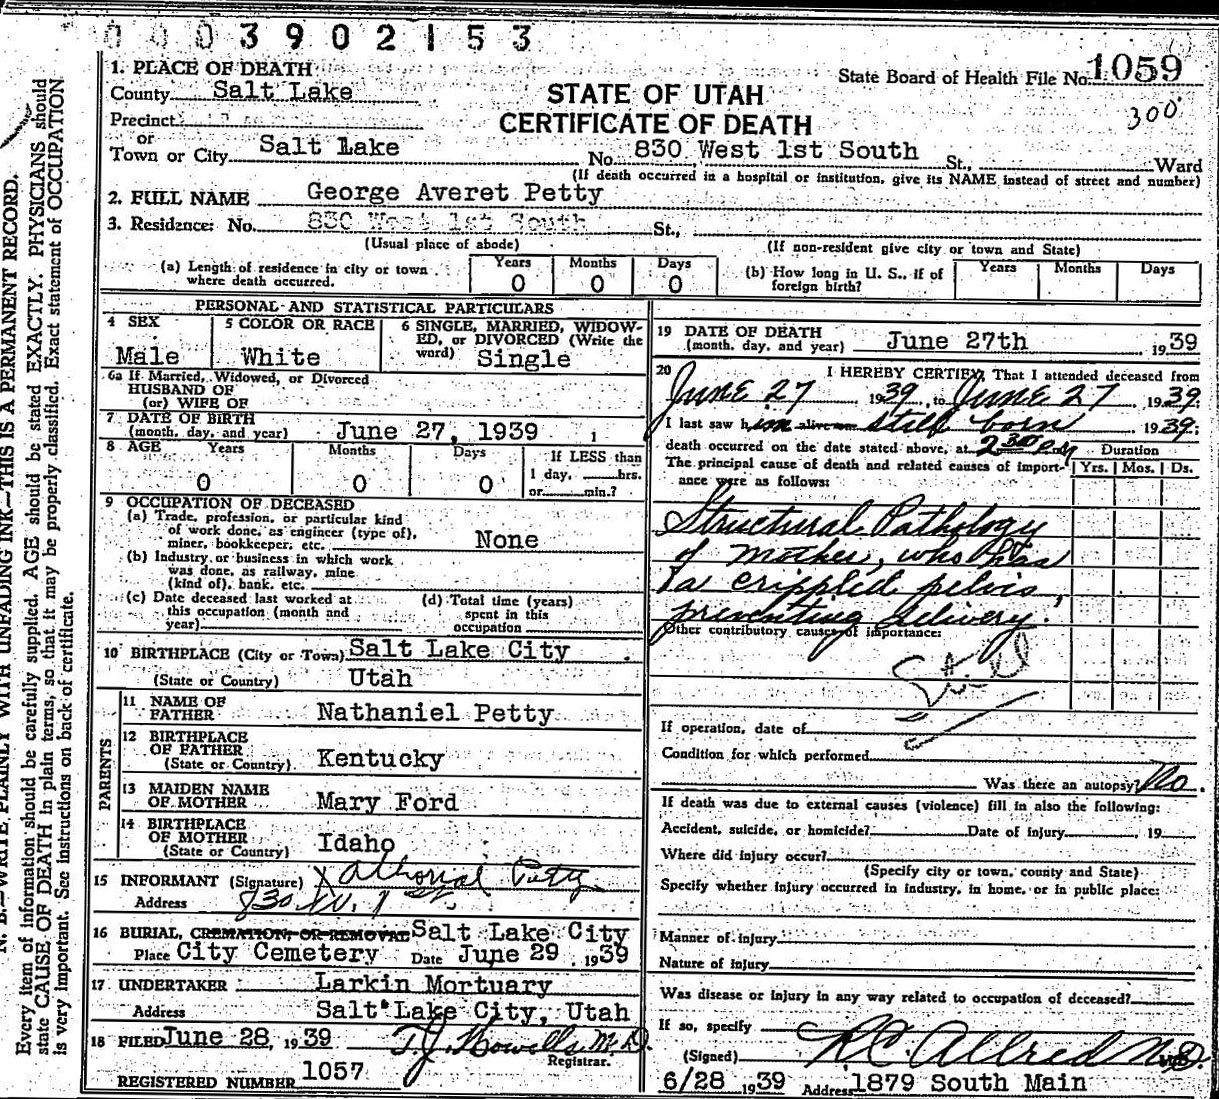 0003902153
1. PLACE OF DEATH
County Salt Lake
State Board of Health File No. 1059
STATE OF UTAH
CERTIFICATE OF DEATH
300
Precinct
or
Town or City Salt Lake No. 830 West 1st South St., Ward
(If death occurred in a hospital or institution, give its NAME instead of street and number)
2. FULL NAME George Averet Petty
3. Residence: No. 830 West 1st South St.,
(Usual place of abode) (If non-resident give city or town and State)
(a) Length of residence in city or town where death occurred. Years 0 Months 0 Days 0
(b) How long in U. S., if of foreign birth? Years Months Days
PERSONAL AND STATISTICAL PARTICULARS
4 SEX Male
5 COLOR OR RACE White
6 SINGLE, MARRIED, WIDOWED, or DIVORCED (Write the word) Single
6a If Married, Widowed, or Divorced
HUSBAND OF
(or) WIFE OF
7 DATE OF BIRTH
(month, day, and year) June 27, 1939
8 AGE Years 0 Months 0 Days 0
If LESS than
1 day, hrs.
or min.?
9 OCCUPATION OF DECEASED
(a) Trade, profession, or particular kind
of work done, as engineer (type of),
miner, bookkeeper, etc. None
(b) Industry or business in which work
was done, as railway, mine
(kind of), bank, etc.
(c) Date deceased last worked at
this occupation (month and
year)
(d) Total time (years)
spent in this
occupation
10 BIRTHPLACE (City or Town) Salt Lake City
(State or Country) Utah
PARENTS
11 NAME OF
FATHER Nathaniel Petty
12 BIRTHPLACE
OF FATHER
(State or Country) Kentucky
13 MAIDEN NAME
OF MOTHER Mary Ford
14 BIRTHPLACE
OF MOTHER
(State or Country) Idaho
15 INFORMANT (Signature) Petty
Address 830 W. 1
16 BURIAL, CREMATION, OR REMOVAL Salt Lake City
Place City Cemetery Date June 29, 1939
17 UNDERTAKER Larkin Mortuary
Address Salt Lake City, Utah
18 FILED June 28, 1939 T. J. Howells M.D.
Registrar.
REGISTERED NUMBER 1057
19 DATE OF DEATH
(month, day, and year) June 27th 1939
20 I HEREBY CERTIFY, That I attended deceased from
June 27 1939, to June 27 1939;
I last saw him alive on still born 1939;
death occurred on the date stated above, at 2:30 P.M
The principal cause of death and related causes of importance were as follows:
Duration
Yrs. Mos. Ds.
Structural Pathology
of mother, who has
a crippled pelvis,
preventing delivery.
Other contributory causes of importance:
Still
If operation, date of
Condition for which performed
Was there an autopsy? No.
If death was due to external causes (violence) fill in also the following:
Accident, suicide, or homicide? Date of injury , 19
Where did injury occur?
(Specify city or town, county and State)
Specify whether injury occurred in industry, in home, or in public place:
Manner of injury
Nature of injury
Was disease or injury in any way related to occupation of deceased?
If so, specify
(Signed) R.C. Allred M.D.
6/28 1939 Address 1879 South Main
N. B.—WRITE PLAINLY WITH UNFADING INK—THIS IS A PERMANENT RECORD.
Every item of information should be carefully supplied. AGE should be stated EXACTLY. PHYSICIANS should
state CAUSE OF DEATH in plain terms, so that it may be properly classified. Exact statement of OCCUPATION
is very important. See instructions on back of certificate.